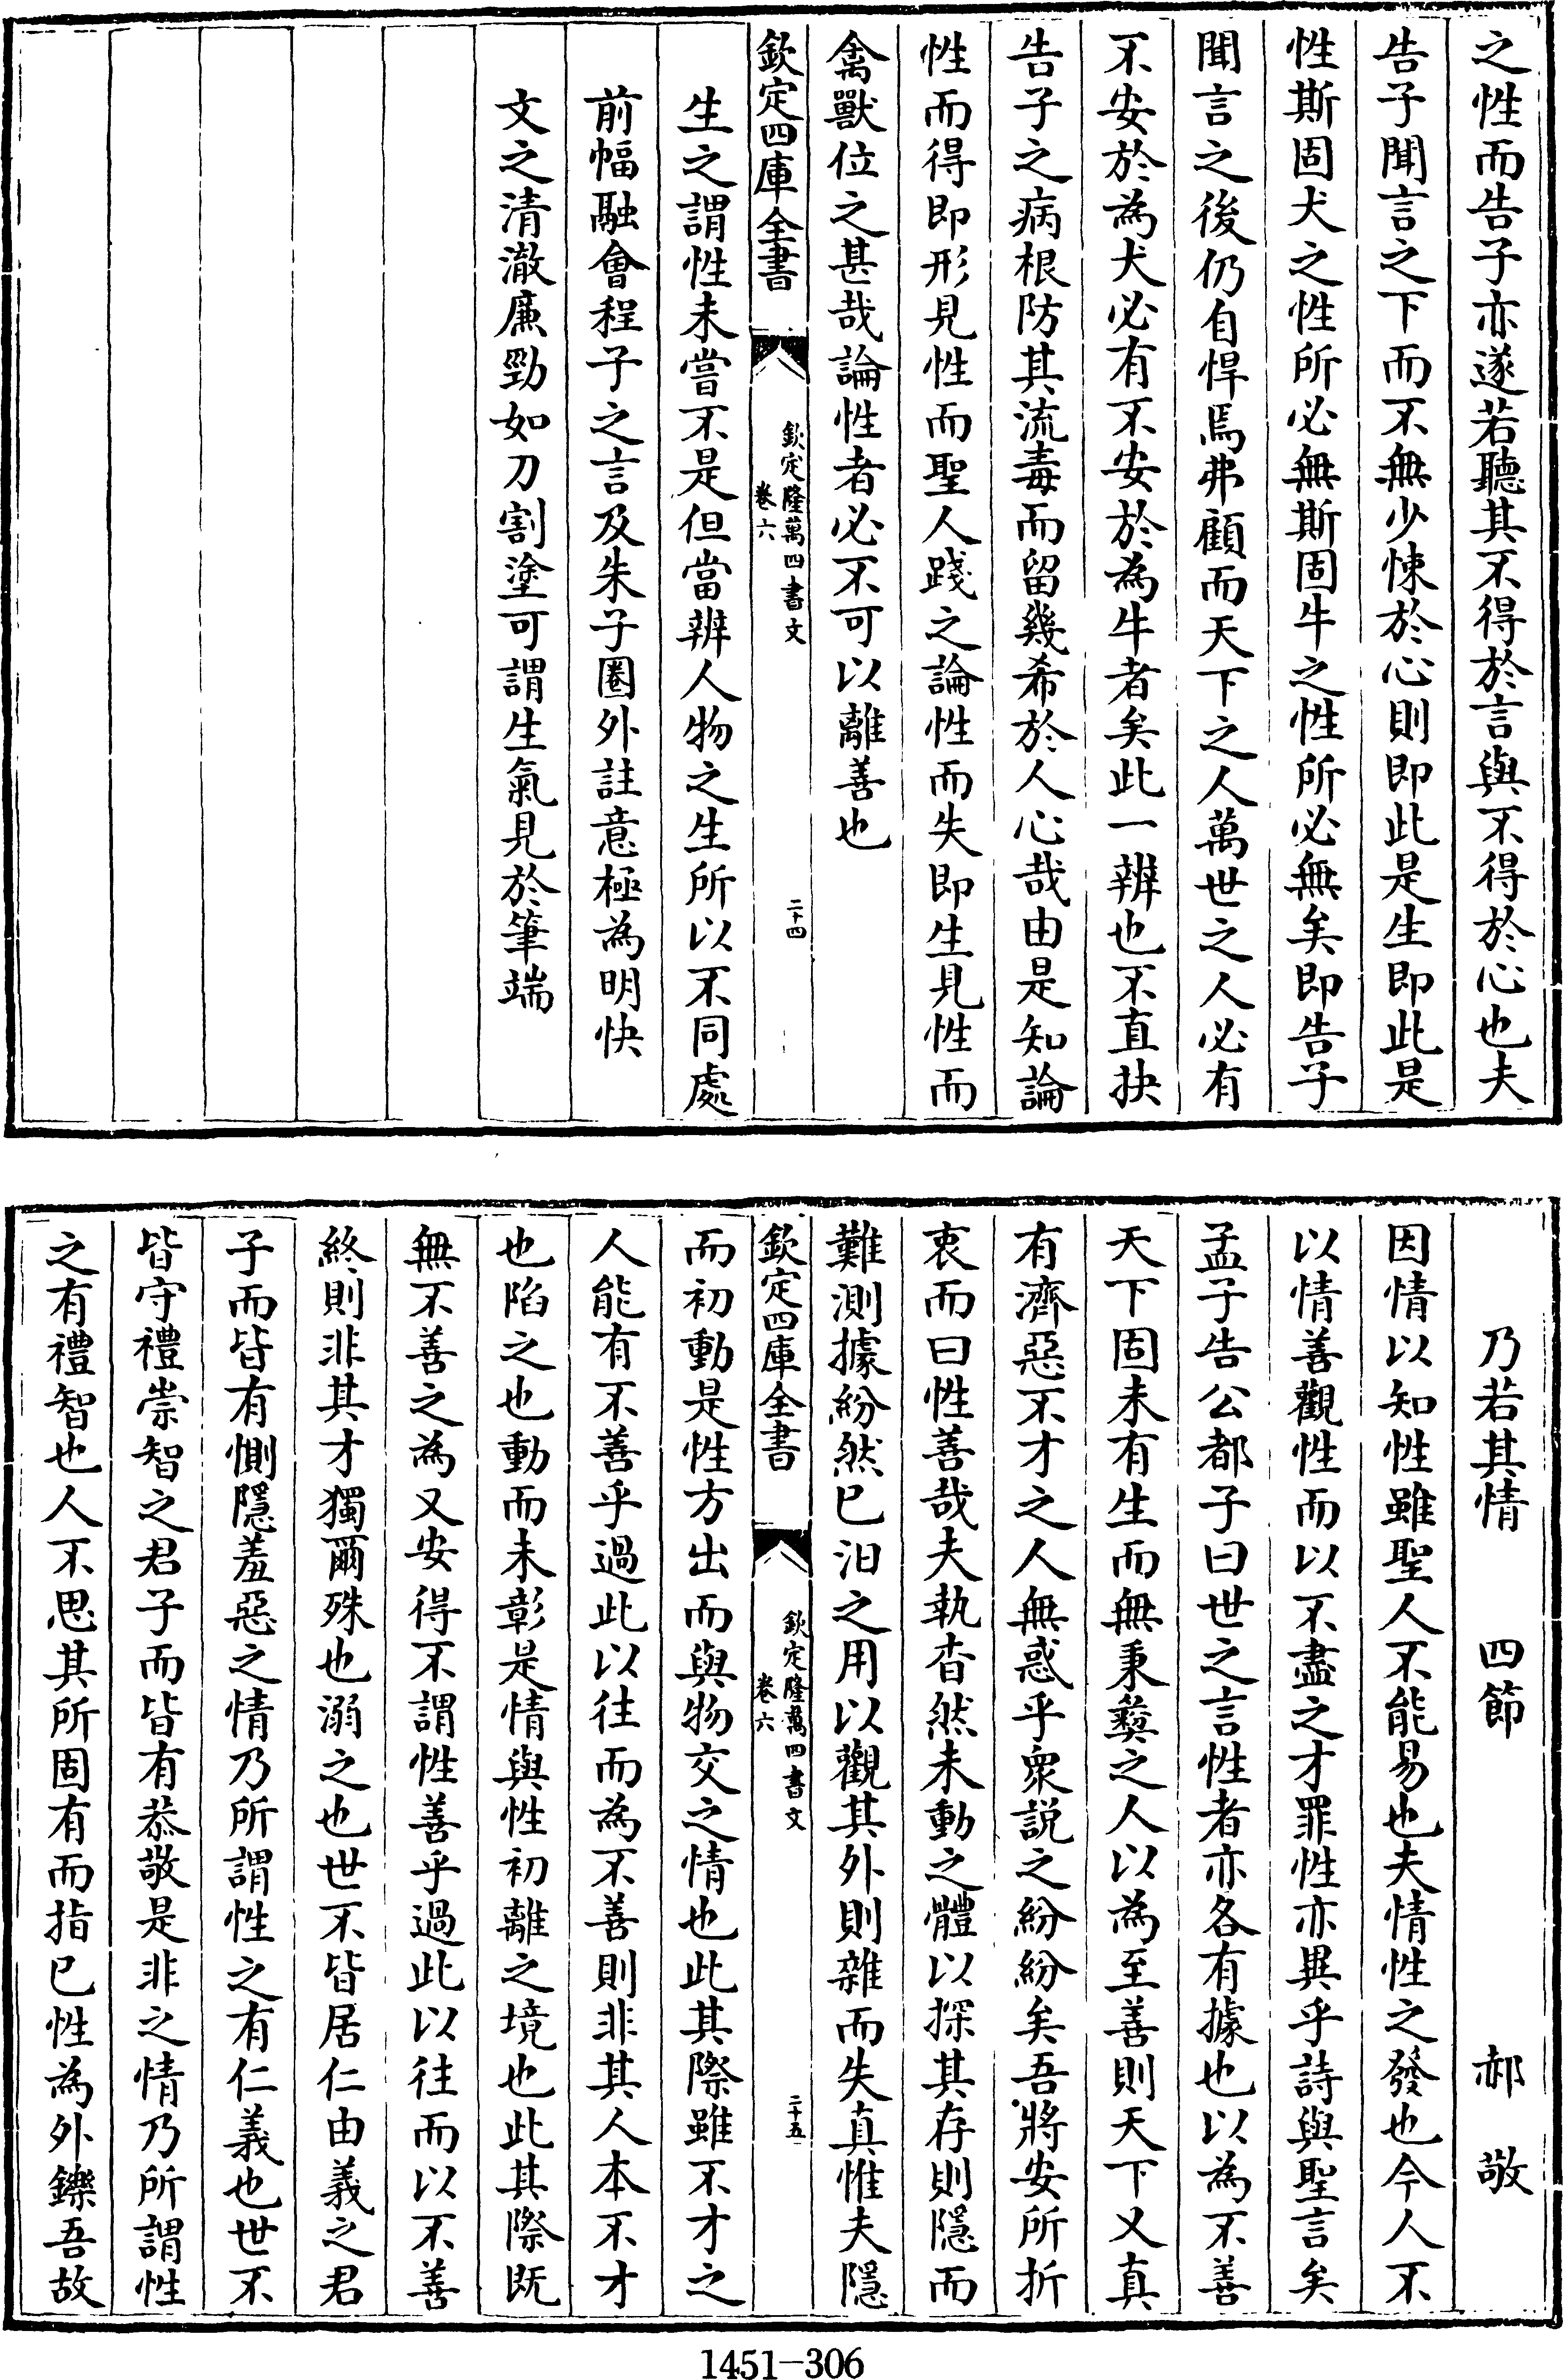 之性而告子亦遂若聽其不得於言與不得於心也夫
告子聞言之下而不無少悚於心則即此是生即此是
性斯固犬之性所必無斯固牛之性所必無矣即告子
聞言之後仍自悍焉弗顧而天下之人萬世之人必有
不安於為犬必有不安於為牛者矣此一辨也不直抉
告子之病根防其流毒而留幾希於人心哉由是知論
性而得即形見性而聖人踐之論性而失即生見性而
禽獸位之甚哉論性者必不可以離善也
欽定四庫全書
欽定隆萬四書文
卷六
二十四
生之謂性未嘗不是但當辨人物之生所以不同處
前幅融會程子之言及朱子圈外註意極為明快
文之清澈廉勁如刀割塗可謂生氣見於筆端
乃若其情 四節 郝敬
因情以知性雖聖人不能易也夫情性之發也今人不
以情善觀性而以不盡之才罪性亦異乎詩與聖言矣
孟子告公都子曰世之言性者亦各有據也以為不善
天下固未有生而無秉彝之人以為至善則天下又真
有濟惡不才之人無惑乎衆説之紛紛矣吾將安所折
衷而曰性善哉夫執杳然未動之體以探其存則隱而
難測據紛然已汨之用以觀其外則雜而失真惟夫隱
欽定四庫全書
欽定隆萬四書文
卷六
二十五
而初動是性方出而與物交之情也此其際雖不才之
人能有不善乎過此以往而為不善則非其人本不才
也陷之也動而未彰是情與性初離之境也此其際既
無不善之為又安得不謂性善乎過此以往而以不善
終則非其才獨爾殊也溺之也世不皆居仁由義之君
子而皆有惻隱羞惡之情乃所謂性之有仁義也世不
皆守禮崇智之君子而皆有恭敬是非之情乃所謂性
之有禮智也人不思其所固有而指已性為外鑠吾故
1451-306